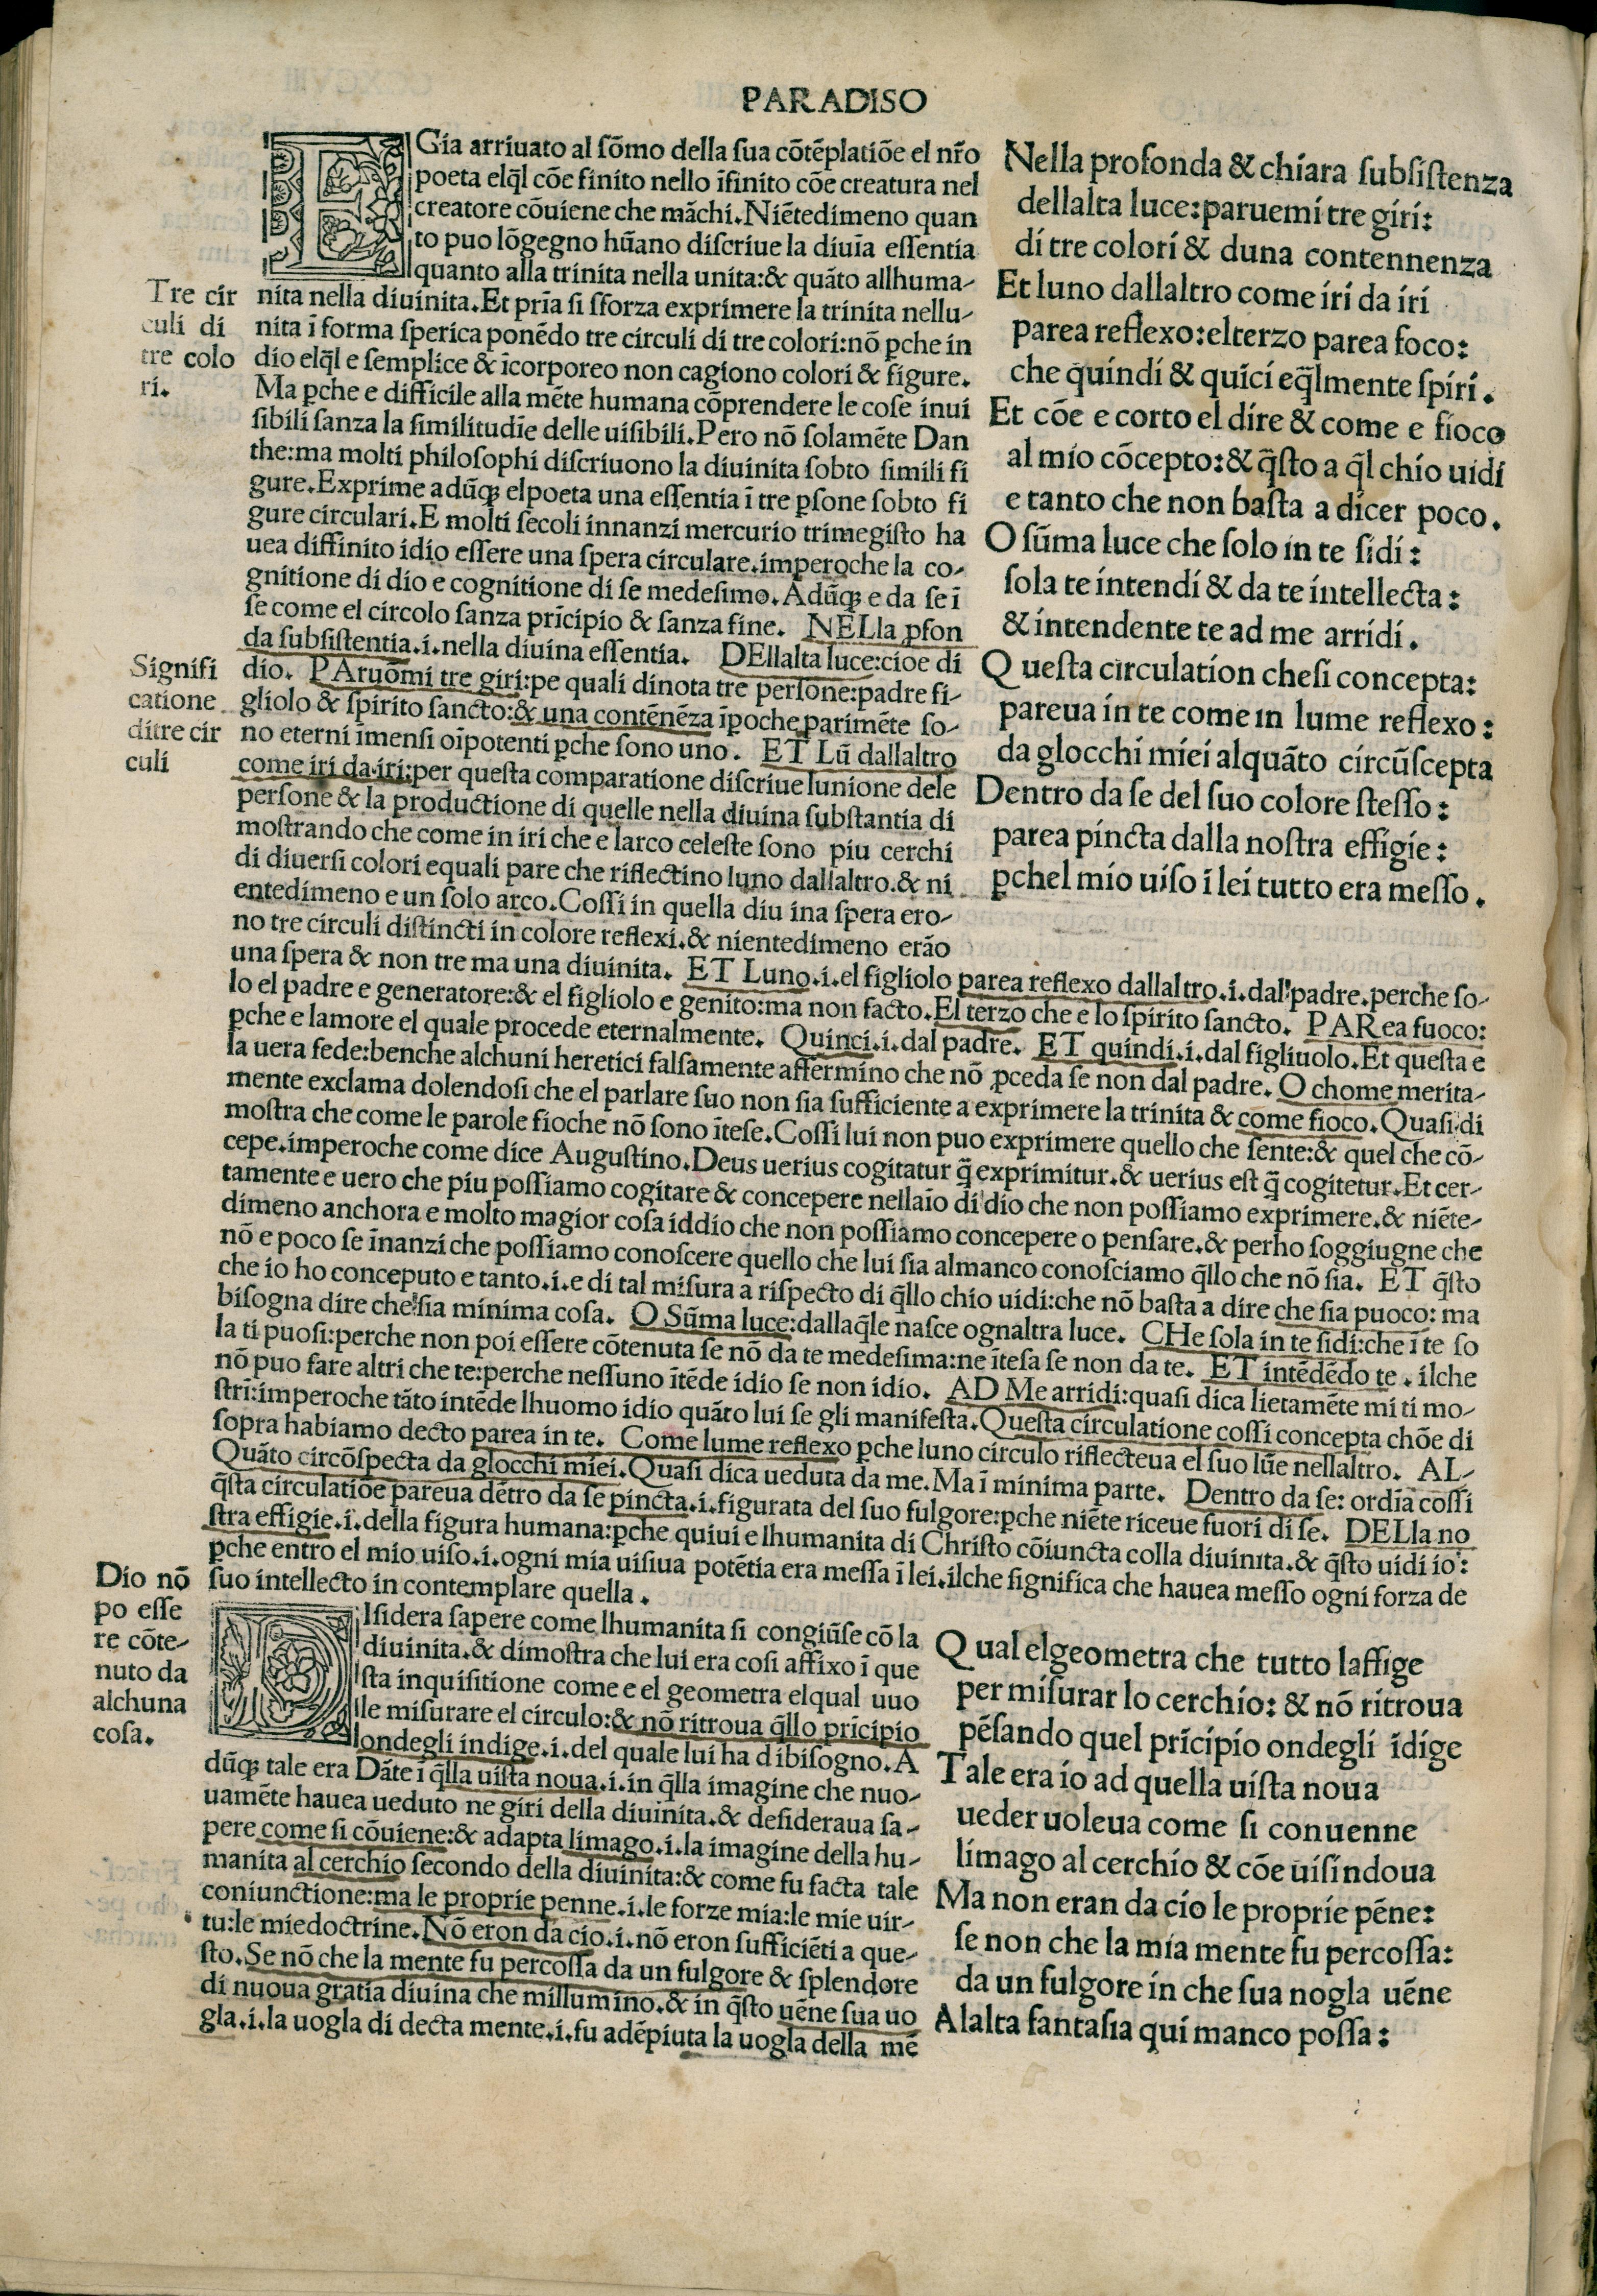 PARADISO
E Gia arriuato al sõmo della sua cõtẽplatiõe el nr̃o
poeta elq̃l cõe finito nello ĩfinito cõe creatura nel
creatore cõuiene che mãchi. Niẽtedimeno quan
to puo lõgegno hũano discriue la diuĩa essentia
quanto alla trinita nella unita: & quãto allhuma-
nita nella diuinita. Et prĩa si sforza exprimere la trinita nellu-
nita ĩ forma sperica ponẽdo tre circuli di tre colori: nõ ꝑche in
dio elq̃l e semplice & ĩcorporeo non cagiono colori & figure.
Ma ꝑche e difficile alla mẽte humana cõprendere le cose inui
sibili sanza la similitudĩe delle uisibili. Pero nõ solamẽte Dan
the: ma molti philosophi discriuono la diuinita sobto simili fi
gure. Exprime adũqꝫ elpoeta una essentia ĩ tre ꝑsone sobto fi
gure circulari. E molti secoli innanzi mercurio trimegisto ha
uea diffinito idio essere una spera circulare. imperoche la co-
gnitione di dio e cognitione di se medesimo. Adũqꝫ e da se ĩ
se come el circolo sanza prĩcipio & sanza fine. NELla ꝓfon
da subsistentia .i. nella diuina essentia. DEllalta luce: cioe di
dio. PAruõmi tre giri: pe quali dinota tre persone: padre fi-
gliolo & spirito sancto: & una contẽnẽza ĩpoche parimẽte so-
no eterni ĩmensi oĩpotenti ꝑche sono uno. ET Lũ dallaltro
come iri da iri: per questa comparatione discriue lunione dele
persone & la productione di quelle nella diuina substantia di
mostrando che come in iri che e larco celeste sono piu cerchi
di diuersi colori equali pare che riflectino luno dallaltro. & ni
entedimeno e un solo arco. Cossi in quella diu ina spera ero-
no tre circuli distincti in colore reflexi. & nientedimeno erão
una spera & non tre ma una diuinita. ET Luno .i. el figliolo parea reflexo dallaltro .i. dal padre. perche so-
lo el padre e generatore: & el figliolo e genito: ma non facto. El terzo che e lo spirito sancto. PARea fuoco:
ꝑche e lamore el quale procede eternalmente. Quinci .i. dal padre. ET quindi .i. dal figliuolo. Et questa e
la uera fede: benche alchuni heretici falsamente affermino che nõ ꝓceda se non dal padre. O chome merita-
mente exclama dolendosi che el parlare suo non sia sufficiente a exprimere la trinita & come fioco. Quasi di
mostra che come le parole fioche nõ sono ĩtese. Cossi lui non puo exprimere quello che sente: & quel che cõ-
cepe. imperoche come dice Augustino. Deus uerius cogitatur q̃ exprimitur. & uerius est q̃ cogitetur. Et cer-
tamente e uero che piu possiamo cogitare & concepere nellaĩo di dio che non possiamo exprimere. & niẽte-
dimeno anchora e molto magior cosa iddio che non possiamo concepere o pensare. & perho soggiugne che
nõ e poco se ĩnanzi che possiamo conoscere quello che lui sia almanco conosciamo q̃llo che nõ sia. ET q̃sto
che io ho conceputo e tanto .i. e di tal misura a rispecto di q̃llo chio uidi: che nõ basta a dire che sia puoco: ma
bisogna dire che sia minima cosa. O Sũma luce: dallaq̃le nasce ognaltra luce. CHe sola in te sidi: che ĩ te so
la ti puosi: perche non poi essere cõtenuta se nõ da te medesima: ne ĩtesa se non da te. ET intẽdẽdo te. ilche
nõ puo fare altri che te: perche nessuno ĩtẽde idio se non idio. AD Me arridi: quasi dica lietamẽte mi ti mo-
stri: imperoche tãto intẽde lhuomo idio quãto lui se gli manifesta. Questa circulatione cossi concepta chõe di
sopra habiamo decto parea in te. Come lume reflexo ꝑche luno circulo riflecteua el suo lũe nellaltro. AL-
Quãto circõspecta da glocchi miei. Quasi dica ueduta da me. Ma ĩ minima parte. Dentro da se: ordĩa cossi
q̃sta circulatiõe pareua dẽtro da se pincta .i. figurata del suo fulgore: ꝑche niẽte riceue fuori di se. DELla no
stra effigie .i. della figura humana: ꝑche quiui e lhumanita di Christo cõiuncta colla diuinita. & q̃sto uidi io:
ꝑche entro el mio uiso .i. ogni mia uisiua potẽtia era messa ĩ lei. ilche significa che hauea messo ogni forza de
suo intellecto in contemplare quella.
Tre cir
culi di
tre colo
ri.
Signifi
catione
ditre cir
culi
Nella profonda & chiara subsistenza
dellalta luce: paruemi tre giri:
di tre colori & duna contennenza
Et luno dallaltro come iri da iri
parea reflexo: elterzo parea foco:
che quindi & quĩci eq̃lmente spiri.
Et cõe e corto el dire & come e fioco
al mio cõcepto: & q̃sto a q̃l chio uidi
e tanto che non basta a dicer poco.
O sũma luce che solo in te sidi:
sola te intendi & da te intellecta:
& intendente te ad me arridi.
Questa circulation chesi concepta:
pareua in te come in lume reflexo:
da glocchi miei alquãto circũscepta
Dentro da se del suo colore stesso:
parea pincta dalla nostra effigie:
ꝑchel mio uiso ĩ lei tutto era messo.
Dio nõ
po esse
re cõte-
nuto da
alchuna
cosa.
DIsidera sapere come lhumanita si congiũse cõ la
diuinita. & dimostra che lui era cosi affixo ĩ que
sta inquisitione come e el geometra elqual uuo
le misurare el circulo: & nõ ritroua q̃llo prĩcipio
ondegli indige .i. del quale lui ha dibisogno. A
dũqꝫ tale era Dãte ĩ q̃lla uista noua .i. in q̃lla imagine che nuo-
uamẽte hauea ueduto ne giri della diuinita. & desideraua sa-
pere come si cõuiene: & adapta limago .i. la imagine della hu-
manita al cerchio secondo della diuinita: & come fu facta tale
coniunctione: ma le proprie penne .i. le forze mia: le mie uir-
tu: le miedoctrine. Nõ eron da cio .i. nõ eron sufficiẽti a que-
sto. Se nõ che la mente fu percossa da un fulgore & splendore
di nuoua gratia diuina che millumino. & in q̃sto uẽne sua uo
gla .i. la uogla di decta mente .i. fu adẽpiuta la uogla della mẽ
Qual elgeometra che tutto laffige
per misurar lo cerchio: & nõ ritroua
pẽsando quel prĩcipio ondegli ĩdige
Tale era io ad quella uista noua
ueder uoleua come si conuenne
limago al cerchio & cõe uisindoua
Ma non eran da cio le proprie pẽne:
se non che la mia mente fu percossa:
da un fulgore in che sua nogla uẽne
Alalta fantasia qui manco possa: